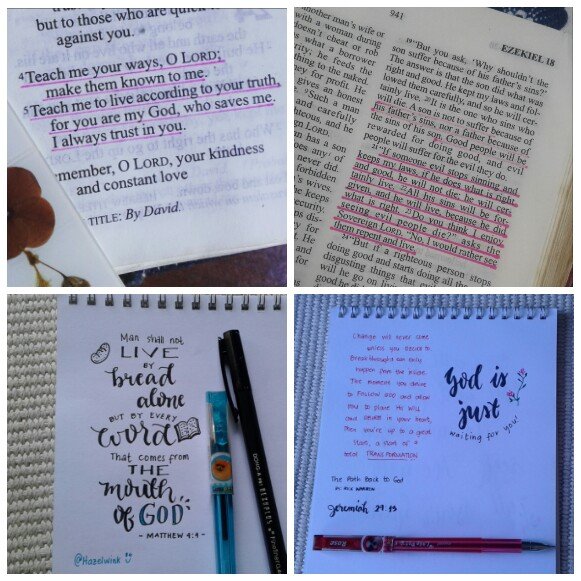 but to those who are quick to
against you.
4Teach me your ways, O LORD;
make them known to me.
5Teach me to live according to your truth,
for you are my God, who saves me.
I always trust in you.
member, O LORD, your kindness
and constant love
TITLE: By David.
941
EZEKIEL 18
another man's wife or
with a woman during
doesn't cheat or rob
what a borrower
he feeds the
to the naked
for profit. He
gives an honest
"Such a man
and
LORD.
has a son
does any
never did
forbidden
wives.
he keeps
security.
He
19"But you ask, 'Why shouldn't the
son suffer because of his father's sins?'
The answer is that the son did what was
right and good. He kept my laws and fol-
lowed them carefully, and so he will cer-
tainly live. 20It is the one who sins who
will die. A son is not to suffer because of
his father's sins, nor a father because of
the sins of his son. Good people will be
rewarded for doing good, and evil
people will suffer for the evil they do.
21"If someone evil stops sinning and
keeps my laws, if he does what is right
and good, he will not die; he will cer-
tainly live. 22All his sins will be for-
given, and he will live, because he did
what is right. 23Do you think I enjoy
seeing evil people die?" asks the
Sovereign LORD. "No, I would rather see
them repent and live.
24"But if a righteous person stops
doing good and starts doing all the
disgusting things that evil
will he go on
Man shall not
LIVE
BY
bread
alone
BUT BY EVERY
word
That comes from
THE
mouth
of GOD
- MATTHEW 4:4 -
@Hazelwink
Change will never come
unless you decide to
Breakthroughs can only
happen from the inside.
The moment you decide
to FOLLOW GOD and allow
Him to place His will
and desires in your heart,
then you're up to a great
start, a start of a
total TRANSFORMATION
God is
just
waiting for you!
The Path Back to God
BY RICK WARREN
Jeremiah 29:13